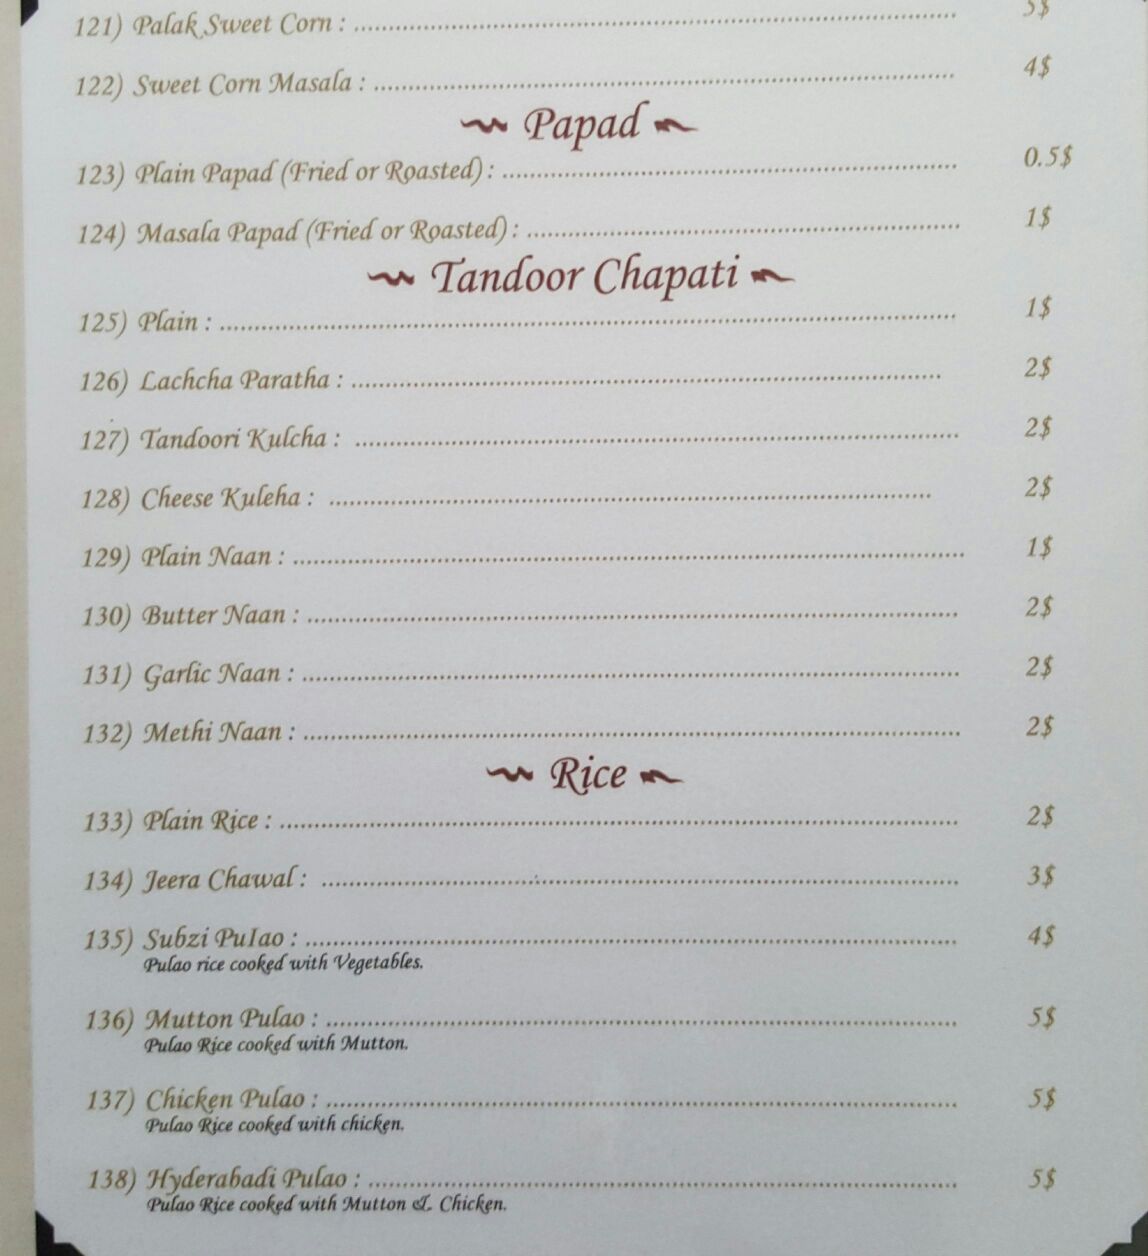 121) Palak Sweet Corn : ........................ 5$
122) Sweet Corn Masala : ........................ 4$
Papad
123) Plain Papad (Fried or Roasted) : ........................ 0.5$
124) Masala Papad (Fried or Roasted) : ........................ 1$
Tandoor Chapati
125) Plain : ........................ 1$
126) Lachcha Paratha : ........................ 2$
127) Tandoori Kulcha : ........................ 2$
128) Cheese Kuleha : ........................ 2$
129) Plain Naan : ........................ 1$
130) Butter Naan : ........................ 2$
131) Garlic Naan : ........................ 2$
132) Methi Naan : ........................ 2$
Rice
133) Plain Rice : ........................ 2$
134) Jeera Chawal : ........................ 3$
135) Subzi PuIao : ........................ 4$
Pulao rice cooked with Vegetables.
136) Mutton Pulao : ........................ 5$
Pulao Rice cooked with Mutton.
137) Chicken Pulao : ........................ 5$
Pulao Rice cooked with chicken.
138) Hyderabadi Pulao : ........................ 5$
Pulao Rice cooked with Mutton & Chicken.